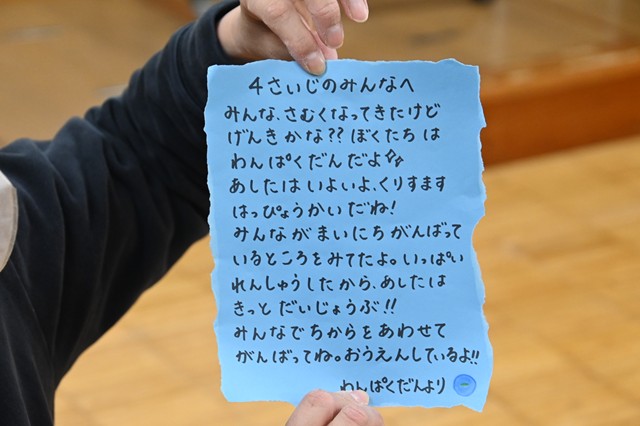 4さいじのみんなへ
みんな、さむくなってきたけど
げんきかな?? ぼくたちは
わんぱくだんだよ☆
あしたはいよいよ、くりすます
はっぴょうかいだね!
みんながまいにちがんばって
いるところをみてたよ。いっぱい
れんしゅうしたから、あしたは
きっとだいじょうぶ!!
みんなでちからをあわせて
がんばってね。おうえんしているよ!!
わんぱくだんより